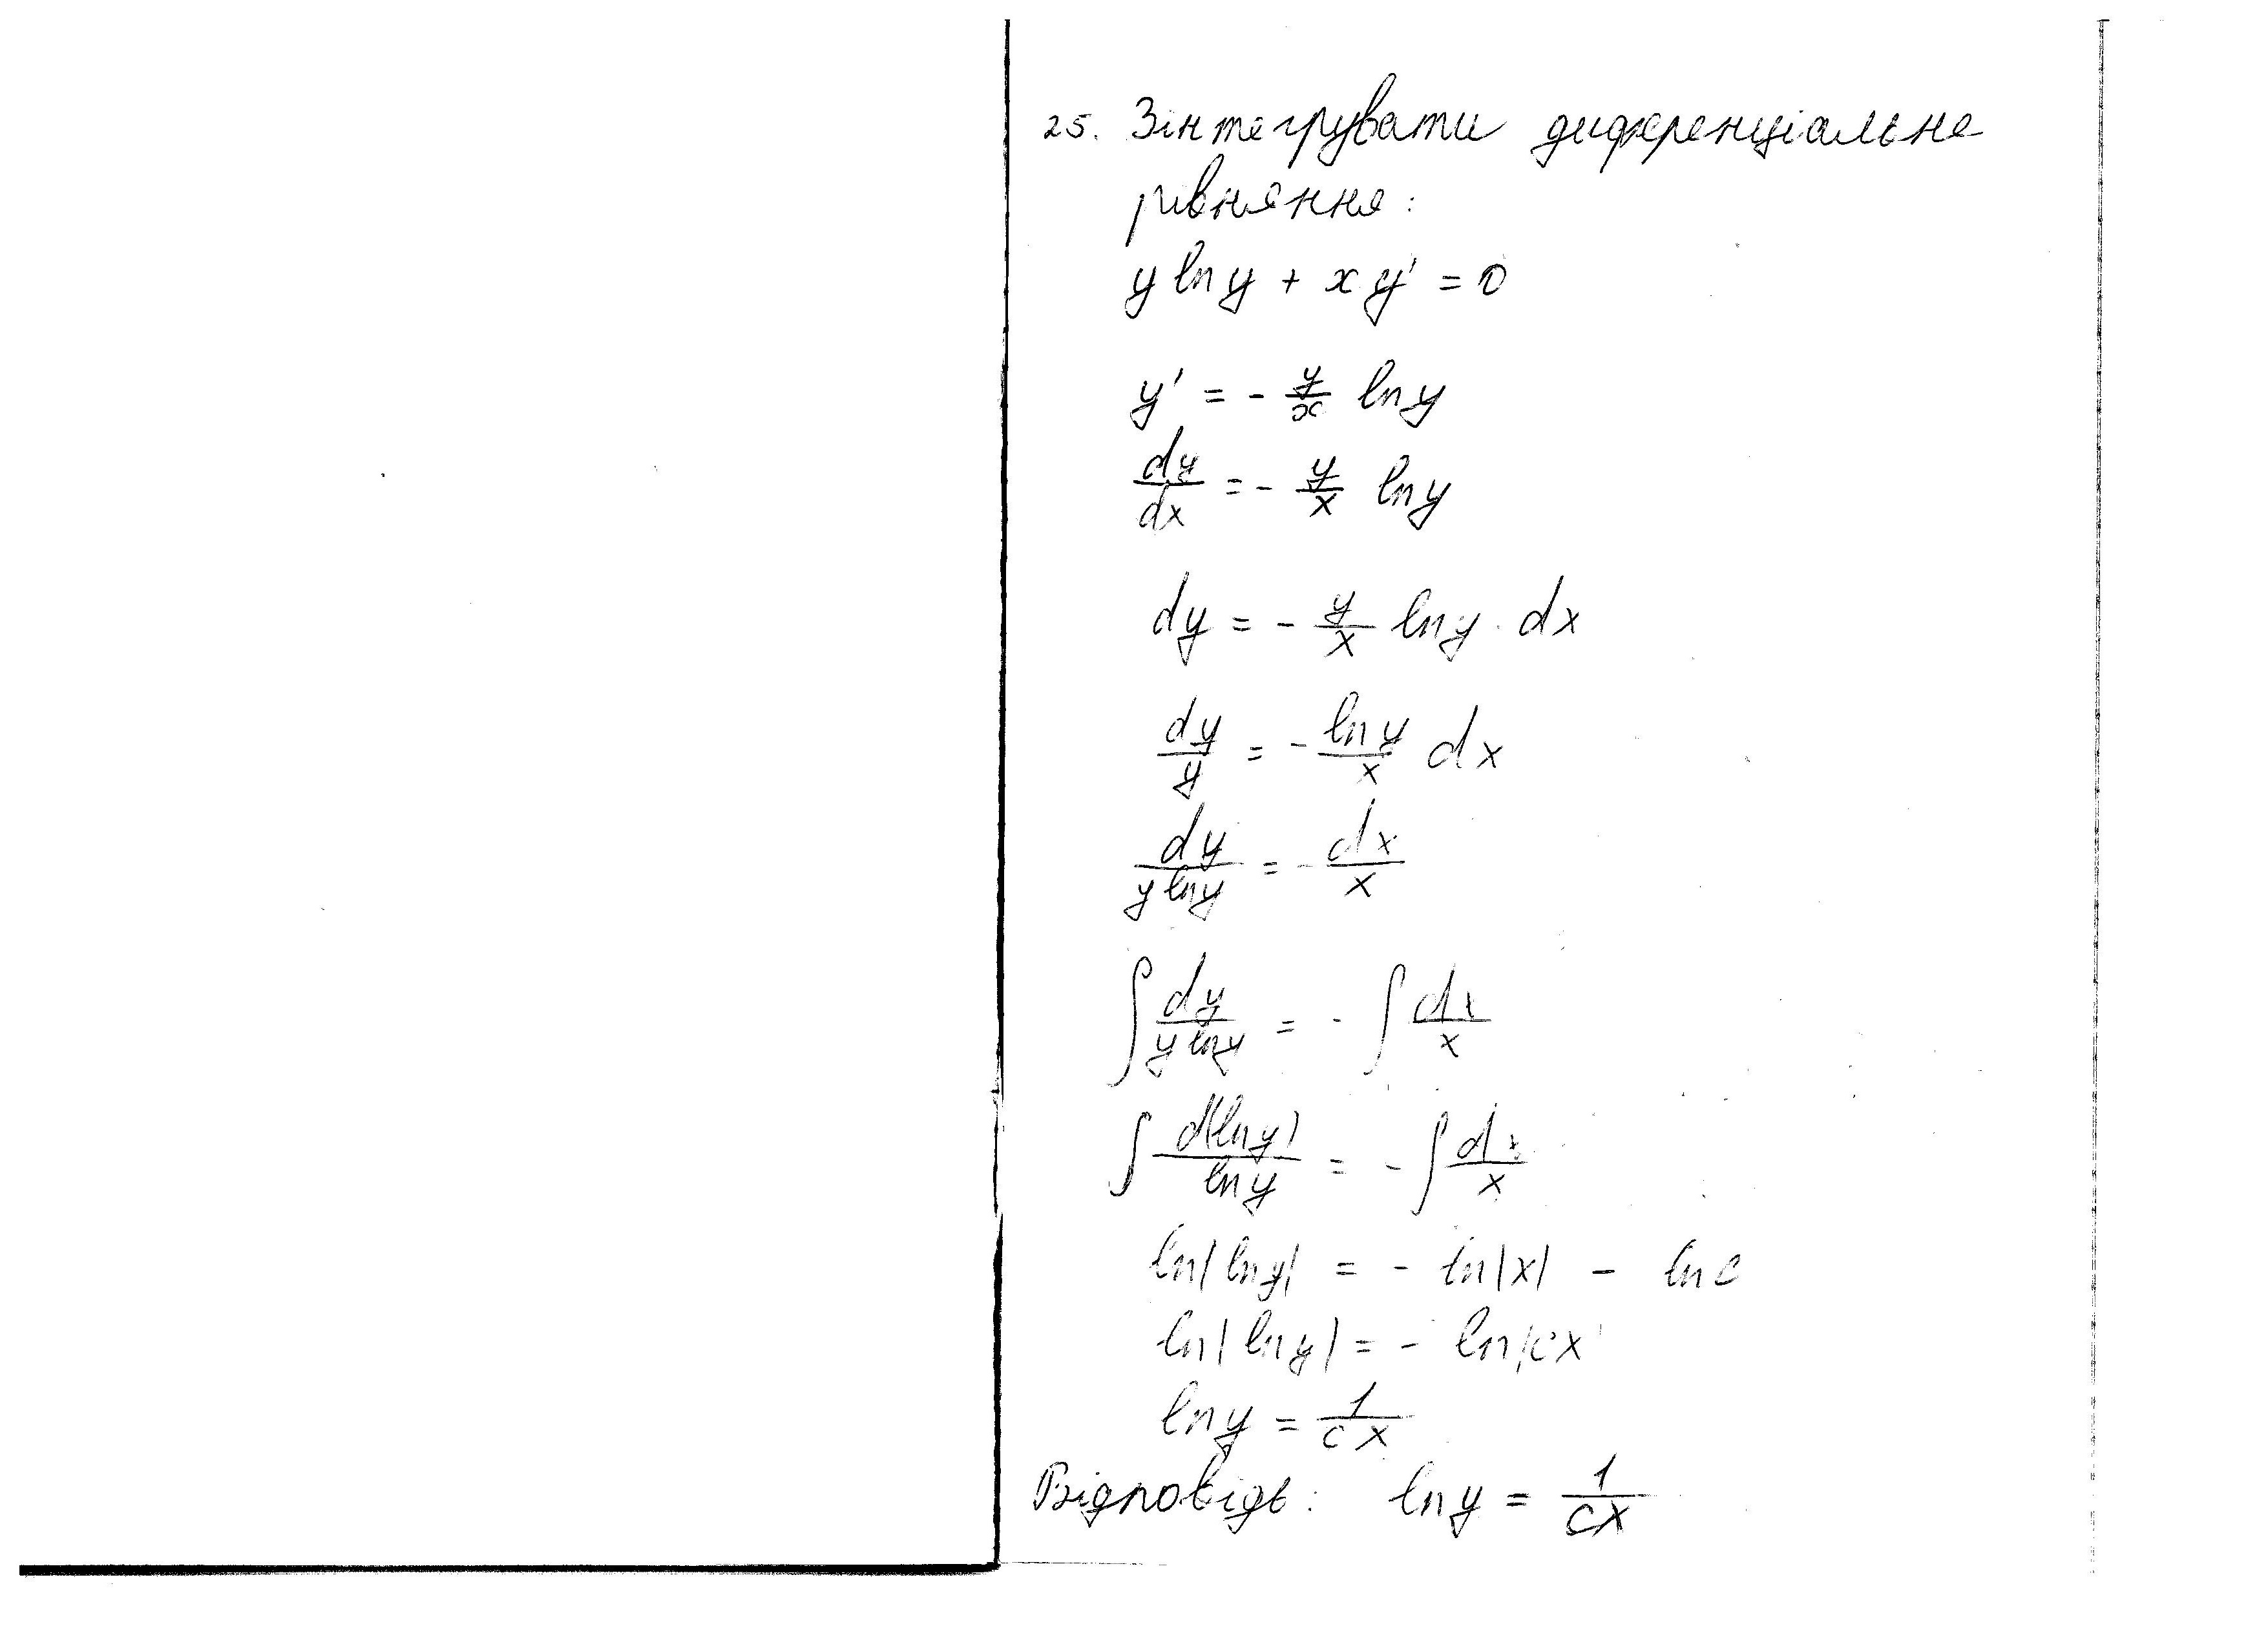 25. Зінтегрувати диференціальне
рівняння:
y ln y + x y' = 0
y' = - y/x ln y
dy/dx = - y/x ln y
dy = - y/x ln y · dx
dy/y = - ln y/x dx
dy/(y ln y) = - dx/x
∫ dy/(y ln y) = - ∫ dx/x
∫ d(ln y)/ln y = - ∫ dx/x
ln|ln y| = - ln|x| - ln c
ln|ln y| = - ln|cx|
ln y = 1/(cx)
Відповідь: ln y = 1/(cx)